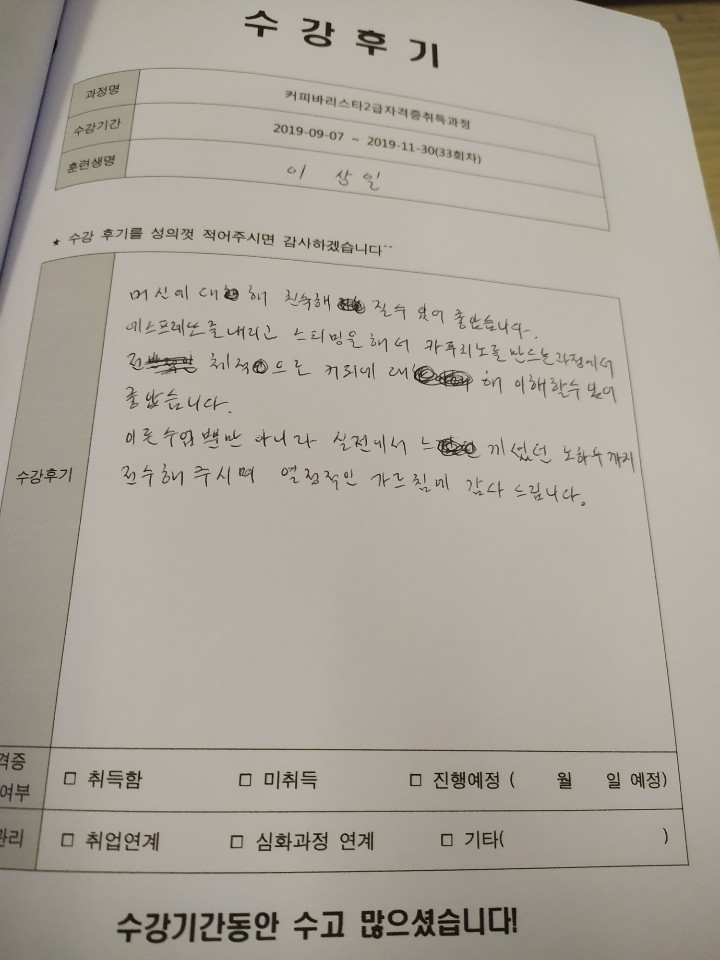 수강후기
과정명 커피바리스타2급자격증취득과정
수강기간 2019-09-07 ~ 2019-11-30(33회차)
훈련생명 이 상 일
★ 수강 후기를 성의껏 적어주시면 감사하겠습니다^^
머신에 대해 친숙해 질수 있어 좋았습니다.
에스프레소를 내리고 스티밍을 해서 카푸치노를 만드는과정에서
체적으로 커피에 대해 이해할수 있어
좋았습니다.
이론수업뿐만 아니라 실전에서 느끼셨던 노하우까지
수강후기
전수해 주시며 열정적인 가르침에 감사 드립니다.
격증
여부
□ 취득함 □ 미취득 □ 진행예정 ( 월 일 예정)
관리 □ 취업연계 □ 심화과정 연계 □ 기타( )
수강기간동안 수고 많으셨습니다!